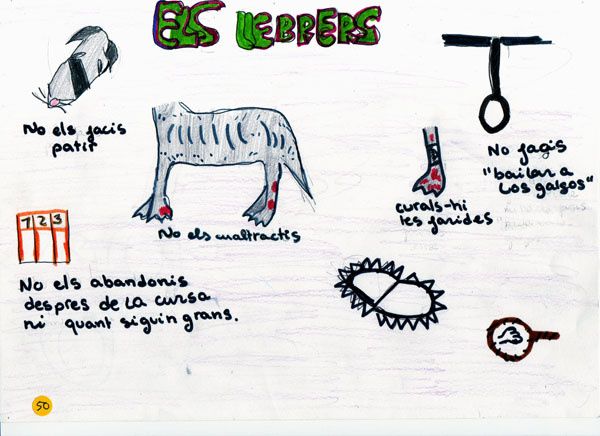 ELS LLEBRERS
No els facis
patir
No els maltractis
curals-hi
les farides
No fagis
"bailar a
Los galgos"
1 2 3
No els abandonis
despres de la cursa
ni quant siguin grans.
50